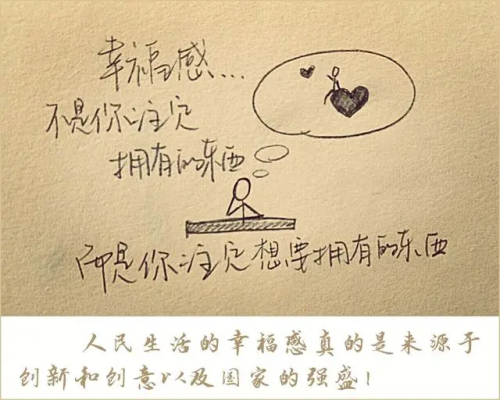 幸福感...
不是你注定
拥有的东西
而是你注定想要拥有的东西
人民生活的幸福感真的是来源于
创新和创意以及国家的强盛！